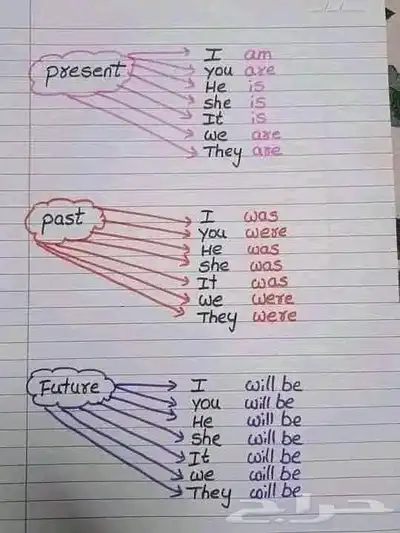 present
I am
you are
He is
she is
It is
we are
They are
past
I was
you were
He was
she was
It was
we were
They were
Future
I will be
you will be
He will be
she will be
It will be
we will be
They will be
حراج